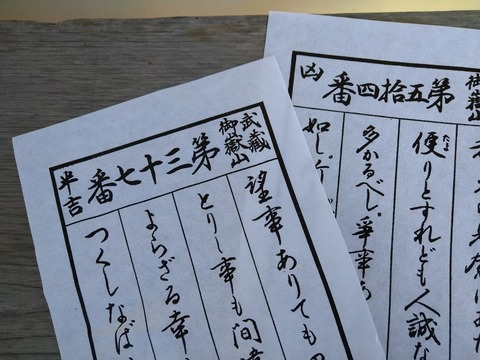 武蔵
御嶽山
第三十七番
半吉
望事ありても
とりし事も間
よらざる幸
つくしなば
御嶽山
第五拾四番
凶
便りとすれども人誠な
たよ
多かるべし。
如し。